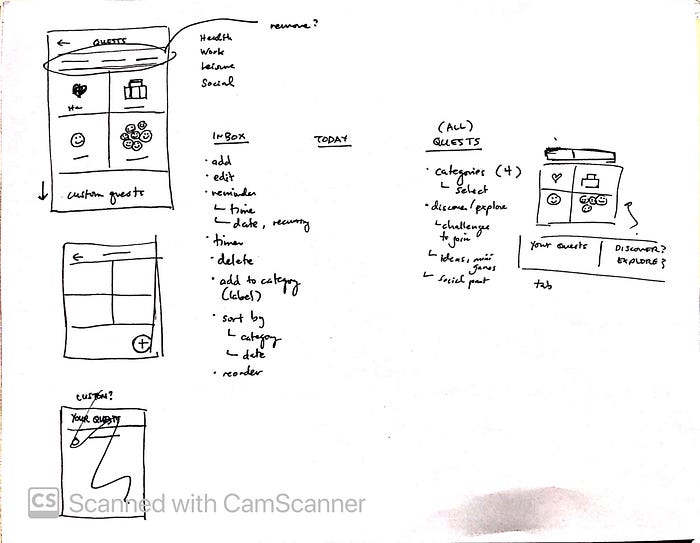 ← QUESTS
remove?
Health
Work
Leisure
Social
He
custom quests
INBOX
• add
• edit
• reminder
↳ time
↳ date, recurring
• timer
• delete
• add to category
(label)
• sort by
↳ category
↳ date
• reorder
TODAY
(ALL)
QUESTS
• categories (4)
↳ select
• discover/explore
↳ challenges
to join
↳ ideas, mini
games
↳ social part
?
Your Quests
DISCOVER?
EXPLORE?
tab
CUSTOM?
YOUR QUESTS
CS Scanned with CamScanner